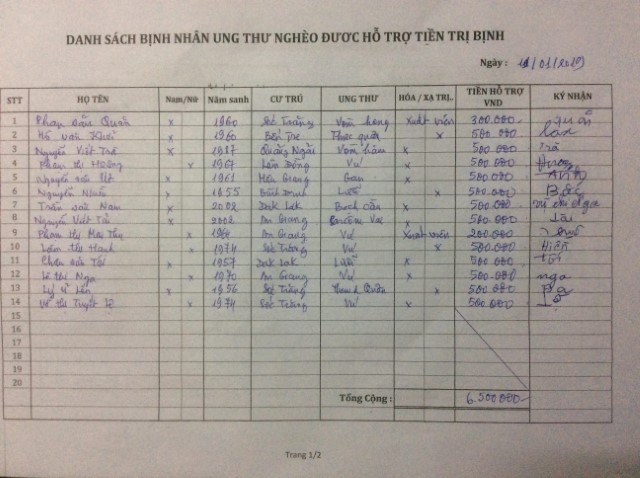 DANH SÁCH BỊNH NHÂN UNG THƯ NGHÈO ĐƯƠC HỖ TRỢ TIỀN TRỊ BỊNH
Ngày : /01/2019
STT HỌ TÊN Nam/Nữ Năm sanh CƯ TRÚ UNG THƯ HÓA / XẠ TRỊ.. TIỀN HỖ TRỢ VND KÝ NHẬN
1 Phan Văn Quân x 1960 Sóc Trăng Vòm họng Xuất viện 300.000.- quân
2 Hồ văn x 1960 Bến Tre Thực quản x 500.000
3 Nguyễn Viết Trã x 1917 Quảng Ngãi Vòm hầu x 500.000 Trã
4 Phạm thị Hường x 1967 Lâm Đồng Vú x 500.000 Hường
5 Nguyễn văn x 1961 Hậu Giang Gan x 500.000
6 Nguyễn Nhiều x 1955 Bình Định Lưỡi x 500.000
7 Trần văn Nam x 2002 Dak Lak x 500.000
8 Nguyễn Viết Tài x 2002 An Giang x 500.000 Tài
9 Phạm thị Mai Thy x An Giang Vú Xuất viện 200.000
10 Lâm thị Hạnh x 1974 Sóc Trăng Vú x 500.000
11 x 1957 Dak Lak Lưỡi x 500.000
12 Lê thị Nga x 1970 An Giang Vú x 500.000 nga
13 x 1956 Sóc Trăng x 500.000
14 Võ thị Tuyết x 1974 Sóc Trăng Vú x 500.000
15
16
17
18
19
20
Tổng Cộng : 6.500.000.-
Trang 1/2